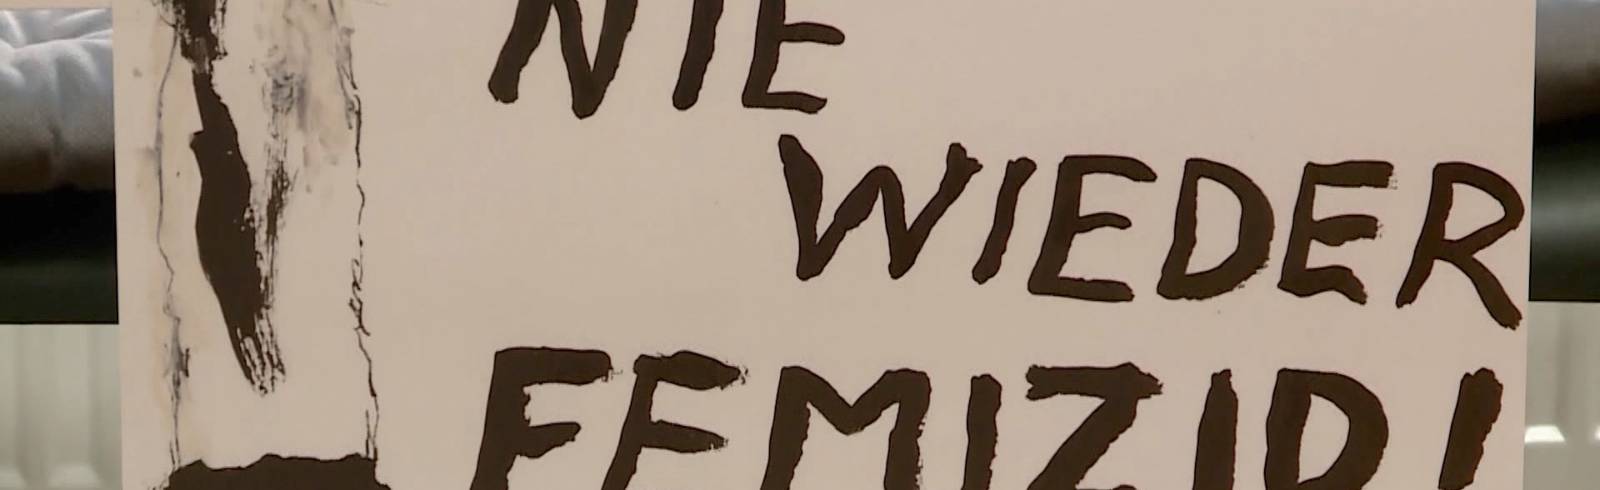 NIE
WIEDER
FEMIZID!